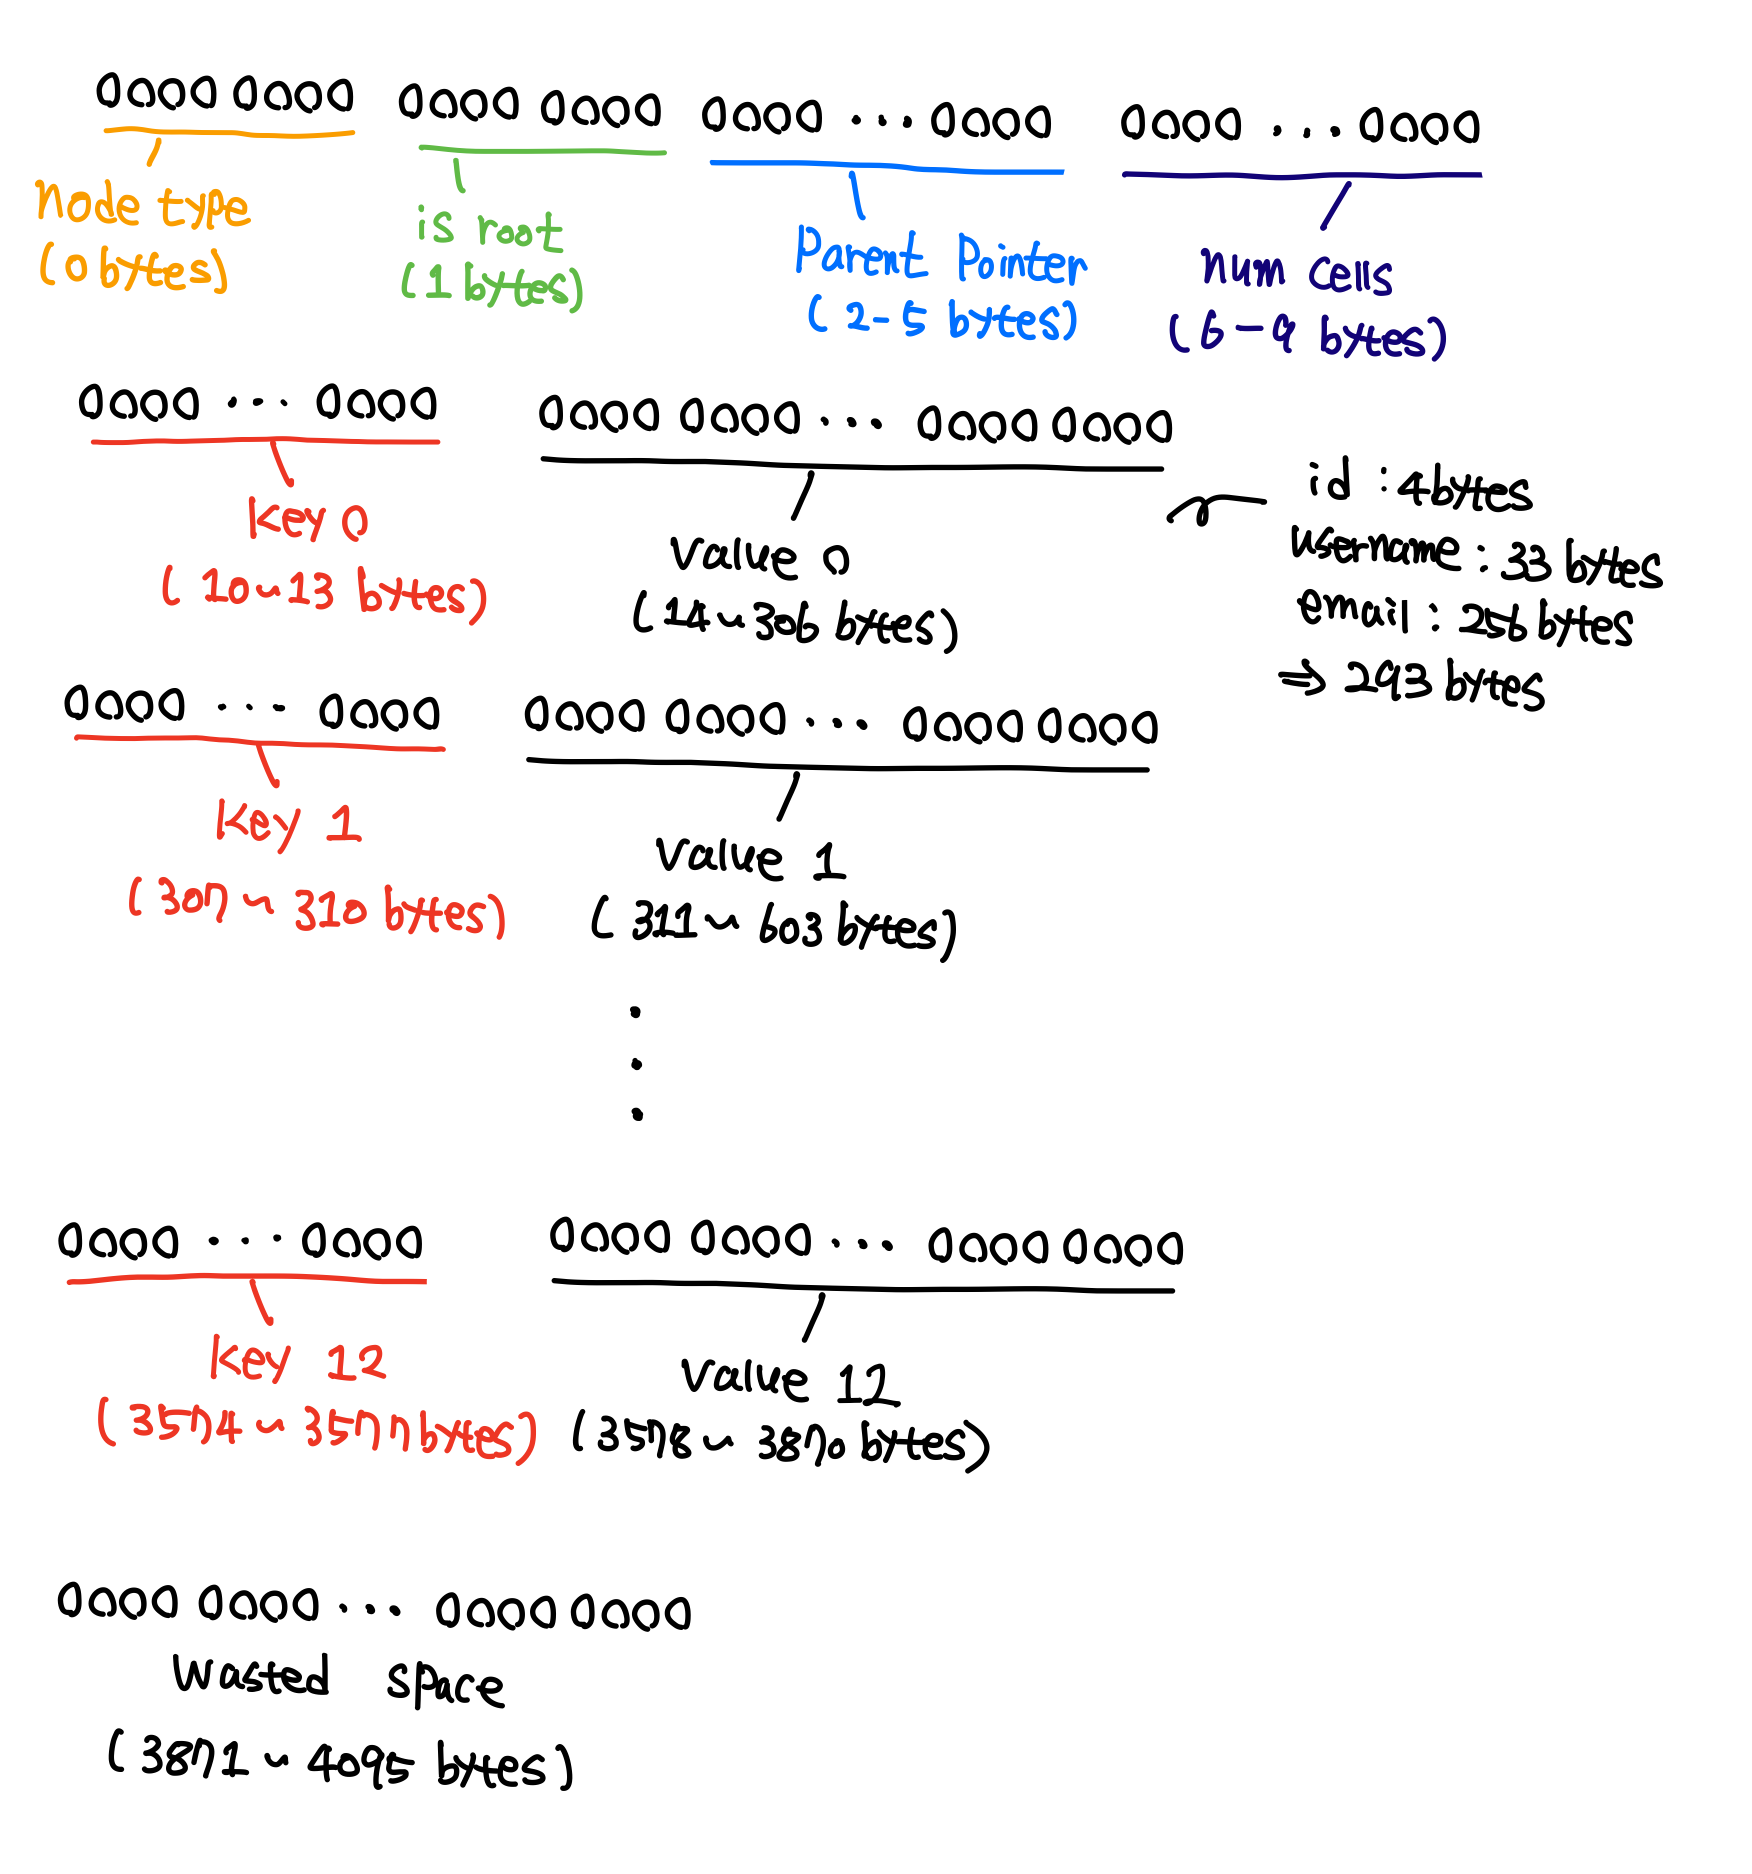 0000 0000 0000 0000 0000 ... 0000 0000 ... 0000
Node type
(0 bytes)
is root
(1 bytes)
Parent Pointer
(2-5 bytes)
num cells
(6-9 bytes)
0000 ... 0000 0000 0000 ... 0000 0000
key 0
(10~13 bytes)
Value 0
(14~306 bytes)
id : 4bytes
username : 33 bytes
email : 256 bytes
⇒ 293 bytes
0000 ... 0000 0000 0000 ... 0000 0000
key 1
(307~310 bytes)
Value 1
(311~603 bytes)
0000 ... 0000 0000 0000 ... 0000 0000
key 12
(3574~3577 bytes)
Value 12
(3578~3870 bytes)
0000 0000 ... 0000 0000
Wasted space
(3871~4095 bytes)